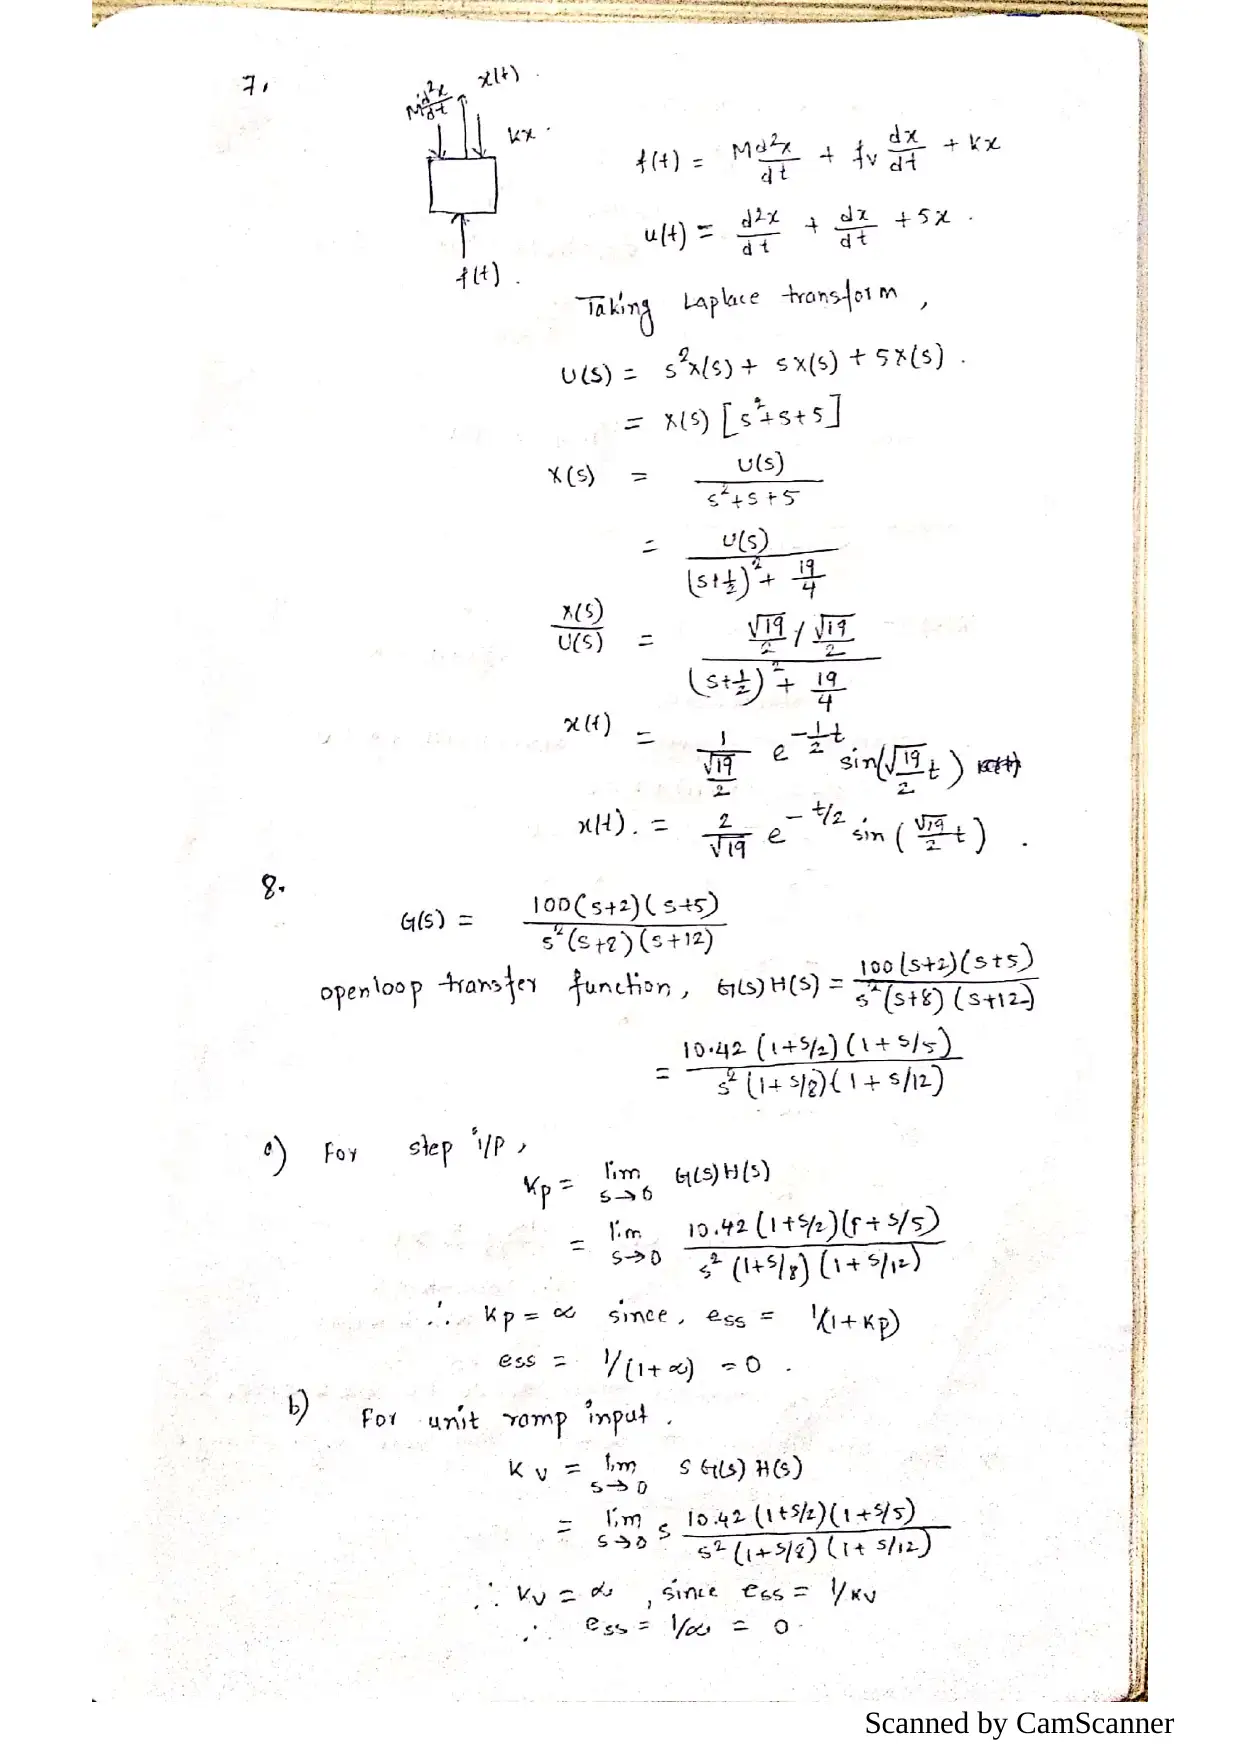 7.
M d²x/dt x(t)
kx
f(t) = M d²x/dt + fv dx/dt + kx
u(t) = d2x/dt + dx/dt + 5x .
f(t) .
Taking Laplace transform ,
U(s) = s²x(s) + sx(s) + 5x(s) .
= x(s) [s²+s+5]
X(s) = U(s)/(s²+s+5)
= U(s)/((s+1/2)² + 19/4)
X(s)/U(s) = (√19/2 / √19/2)/((s+1/2)² + 19/4)
x(t) = 1/(√19/2) e^(-1/2 t) sin(√19/2 t)
x(t). = 2/√19 e^(-t/2) sin (√19/2 t) .
8.
G(s) = 100(s+2)(s+5)/(s²(s+8)(s+12))
openloop transfer function, G(s)H(s) = 100(s+2)(s+5)/(s²(s+8)(s+12))
= 10.42 (1+s/2)(1+s/5)/(s²(1+s/8)(1+s/12))
a) For step i/p ,
Kp = lim s→0 G(s)H(s)
= lim s→0 10.42(1+s/2)(1+s/5)/(s²(1+s/8)(1+s/12))
∴ Kp = ∝ since, ess = 1/(1+Kp)
ess = 1/(1+∝) = 0 .
b) For unit ramp input .
Kv = lim s→0 S G(s) H(s)
= lim s→0 s 10.42(1+s/2)(1+s/5)/(s²(1+s/8)(1+s/12))
∴ Kv = ∝ , since ess = 1/Kv
∴ ess = 1/∝ = 0 .
Scanned by CamScanner